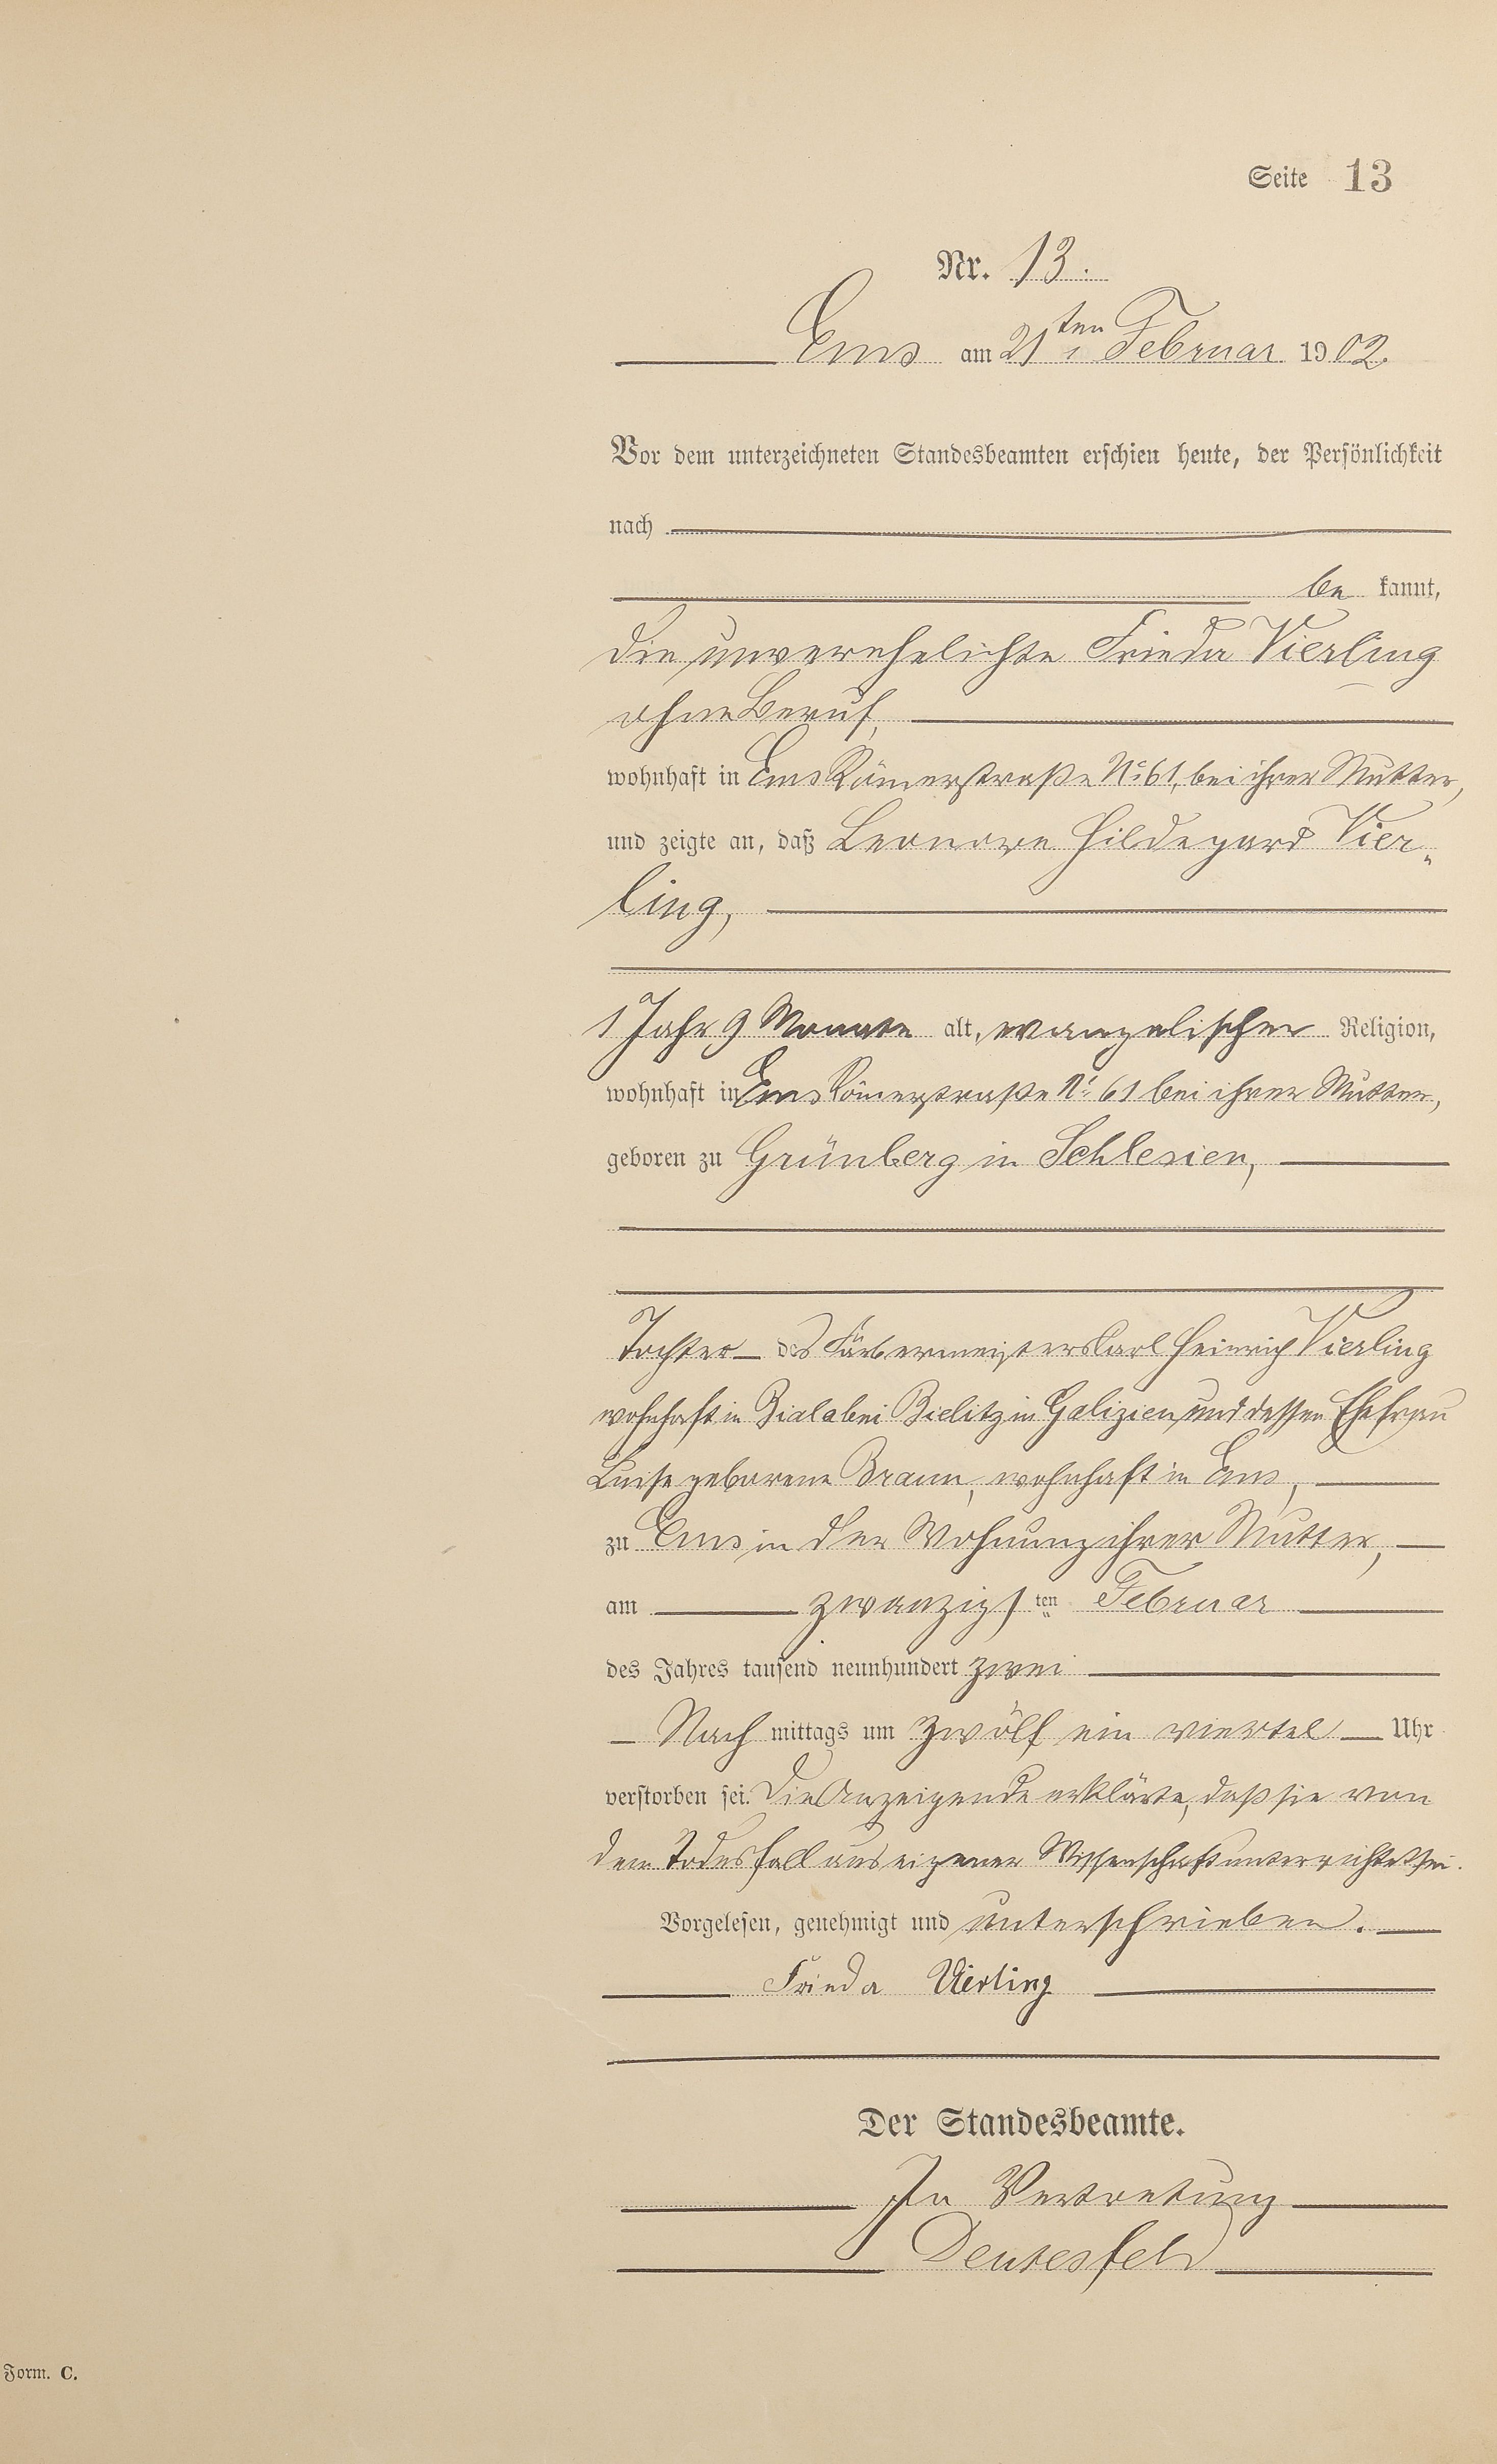 Seite 13
Nr. 13.
Ems am 21ten Februar 1902.
Vor dem unterzeichneten Standesbeamten erschien heute, der Persönlichkeit
nach
be kannt,
die unverehelichte Frieda Vierling
ohne Beruf,
wohnhaft in Ems Römerstraße No 61, bei ihrer Mutter,
und zeigte an, daß Leonore Hildegard Vier-
ling,
1 Jahr 9 Monate alt, evangelischer Religion,
wohnhaft in Ems Römerstraße No 61 bei ihrer Mutter,
geboren zu Grünberg in Schlesien,
Tochter des Färbermeisters Carl Heinrich Vierling
wohnhaft in Biala bei Bielitz in Galizien, und dessen Ehefrau
Luise geborene Braun, wohnhaft in Ems,
zu Ems in der Wohnung ihrer Mutter,
am zwanzigsten Februar
des Jahres tausend neunhundert zwei
Nachmittags um zwölf ein viertel Uhr
verstorben sei. Die Anzeigende erklärte, daß sie von
dem Todesfall aus eigener Wissenschaft unterrichtet sei.
Vorgelesen, genehmigt und unterschrieben.
Frieda Vierling
Der Standesbeamte.
In Vertretung
Deusesfeld
Form. C.